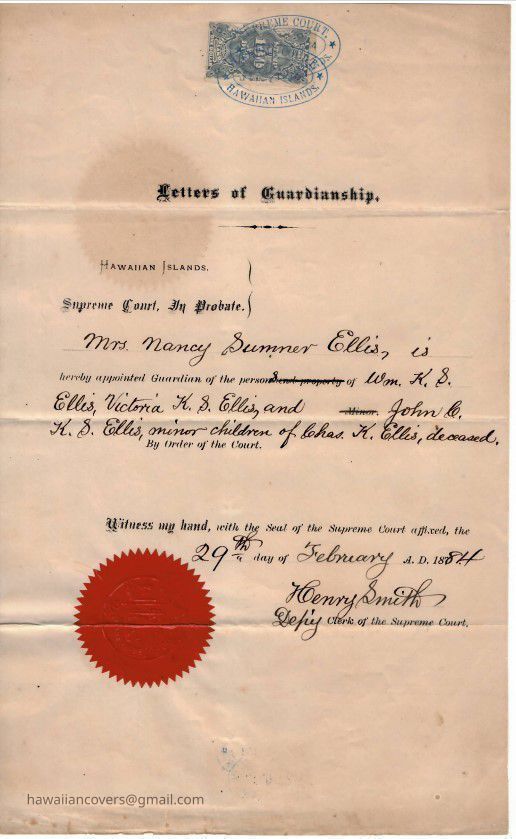 SUPREME COURT.
HAWAIIAN ISLANDS.
Letters of Guardianship.
HAWAIIAN ISLANDS.
Supreme Court, In Probate.
Mrs. Nancy Sumner Ellis, is
hereby appointed Guardian of the persons and property of Wm. K. S.
Ellis, Victoria K. S. Ellis, and Minor, John C.
K. S. Ellis, minor children of Chas. K. Ellis, deceased.
By Order of the Court.
Witness my hand, with the Seal of the Supreme Court affixed, the
29th day of February A. D. 1884
Henry Smith
Dep'y Clerk of the Supreme Court.
hawaiiancovers@gmail.com